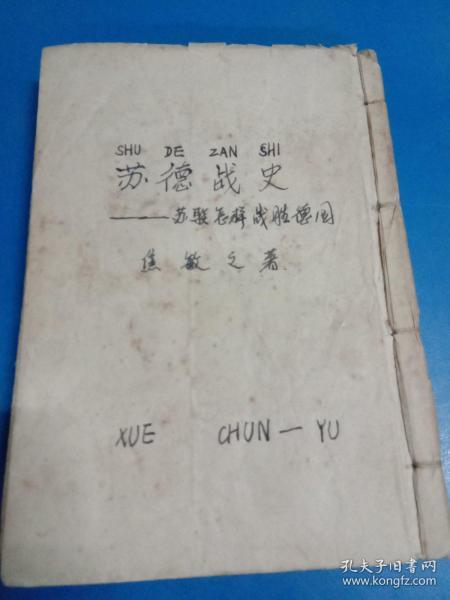 SHU DE ZAN SHI
苏德战史
——苏联怎样战胜德国
焦敏之著
XUE CHUN—YU
孔夫子旧书网
www.kongfz.com